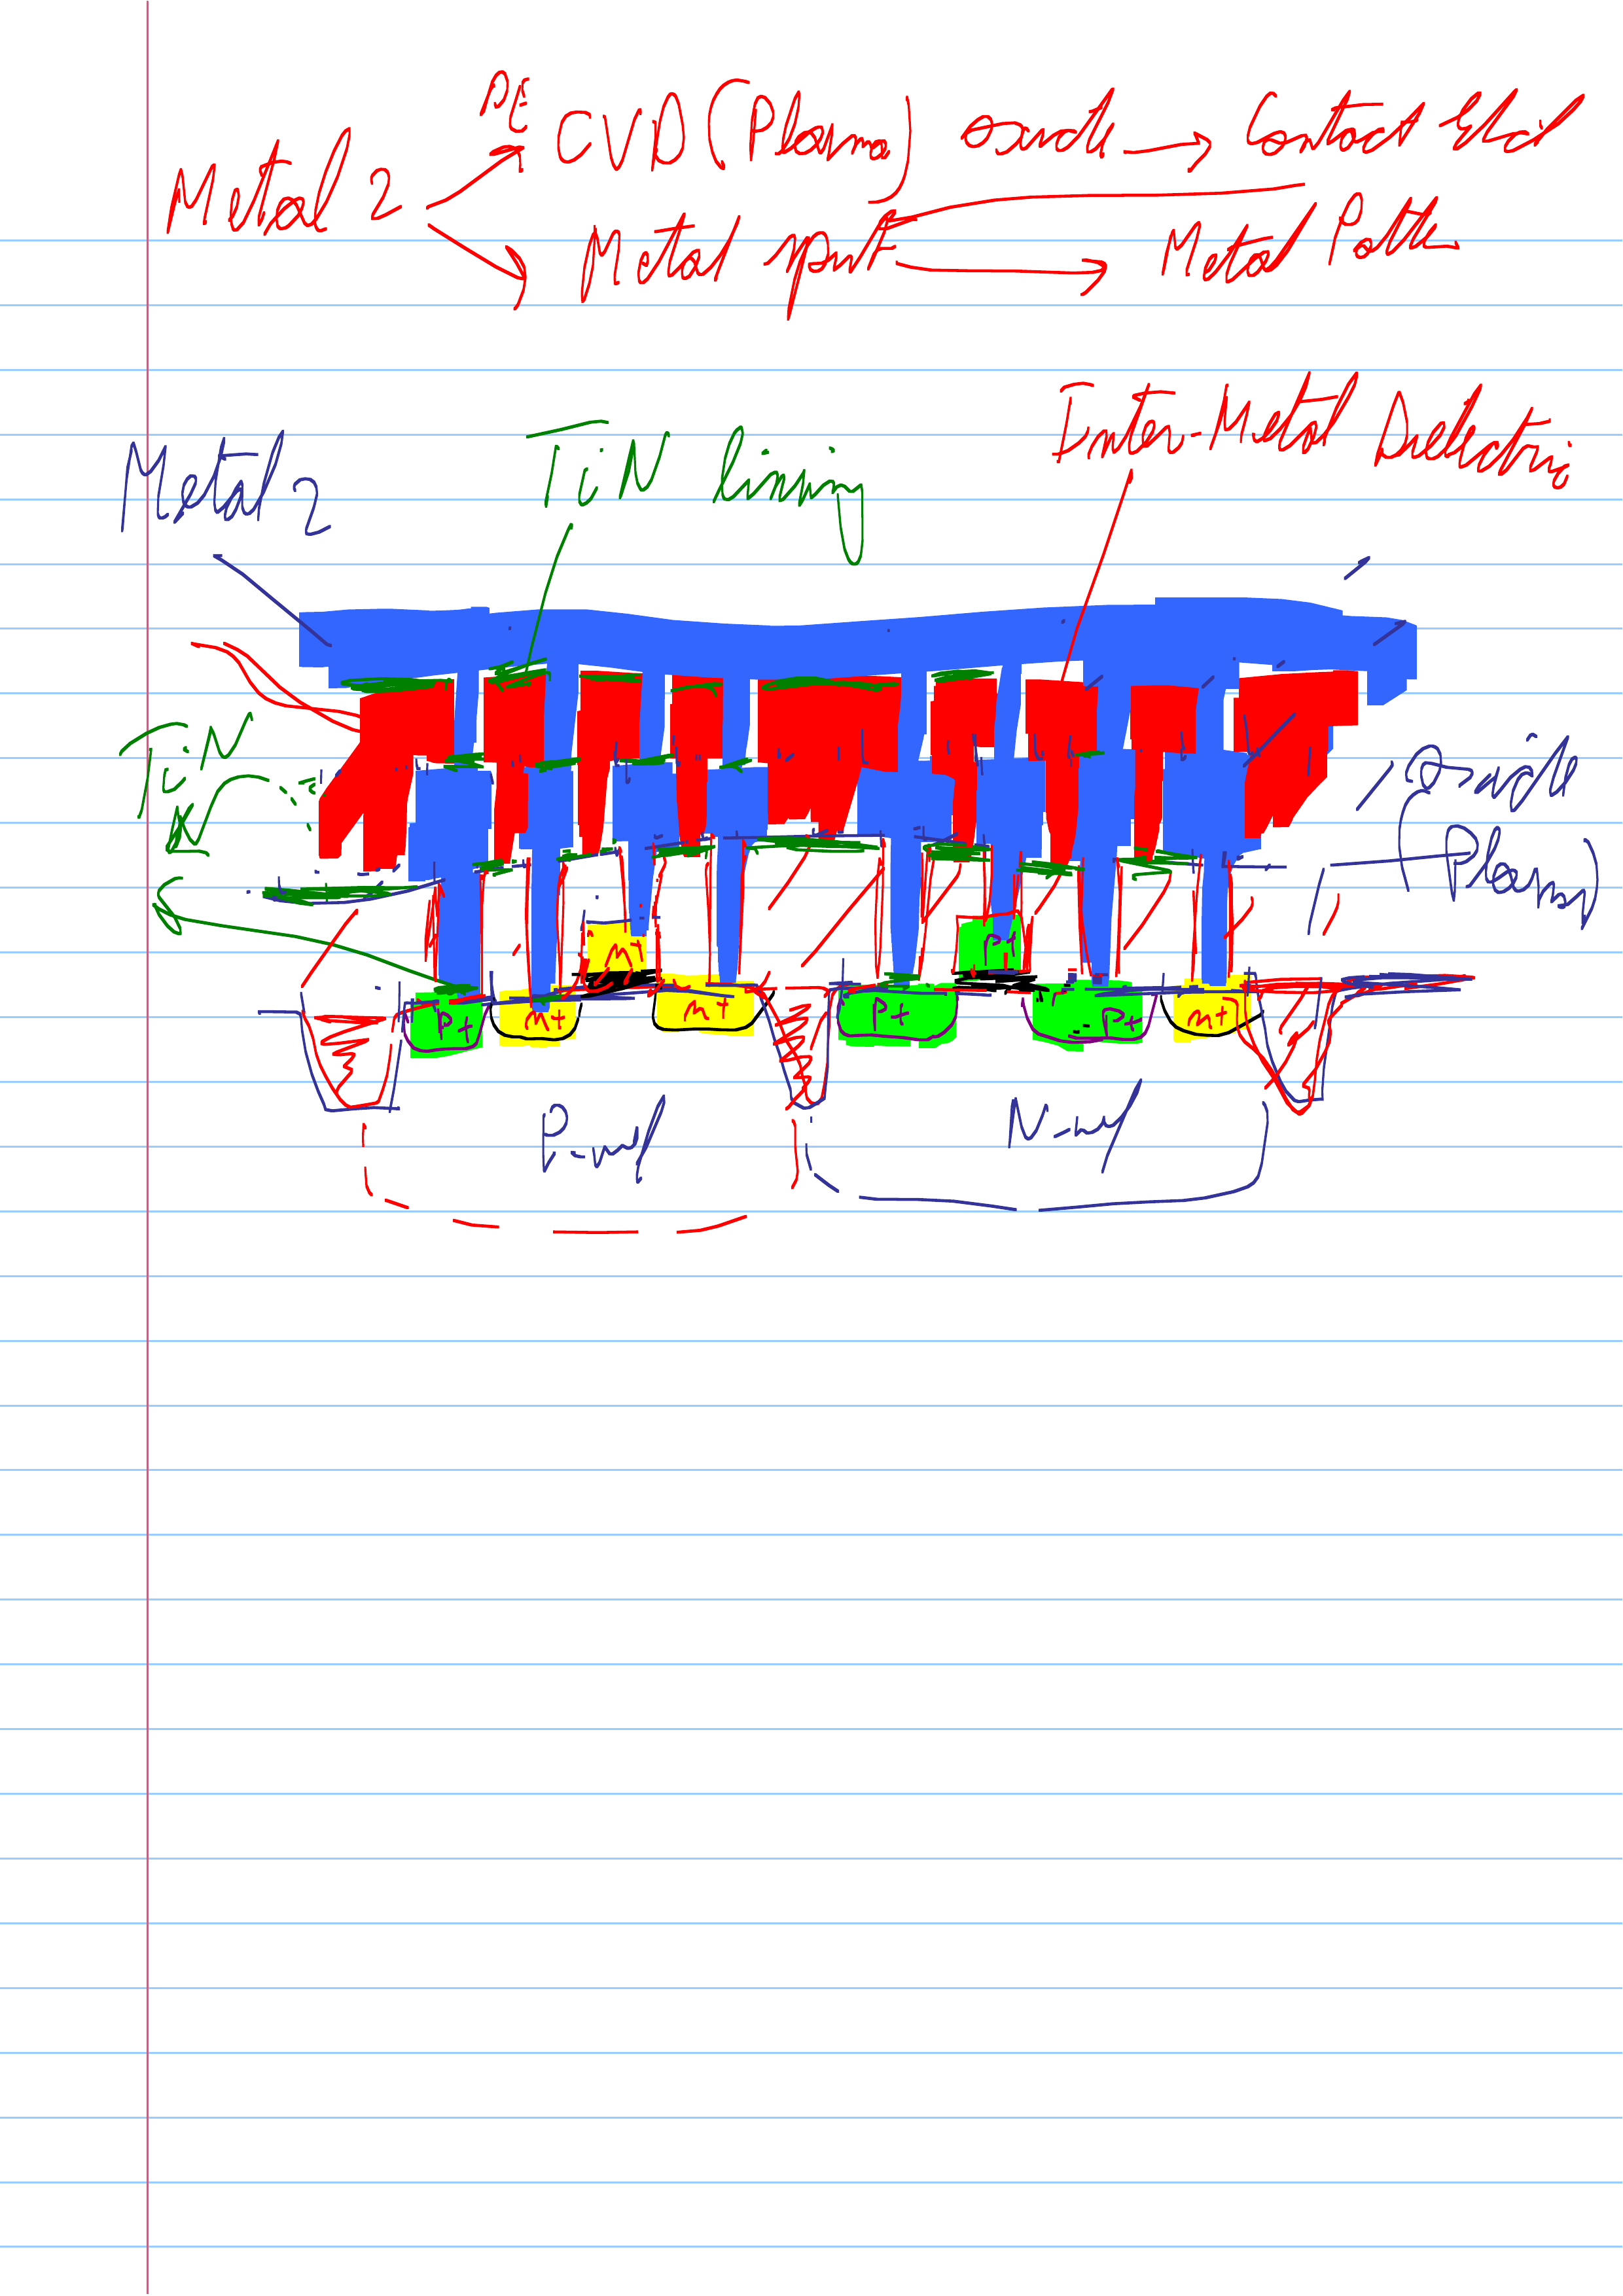 Metal 2
PE CVD (Plasma) oxide → Contact Etch
Metal sputt → Metal Patte
Metal 2
TiN lining
Inter-Metal Dielectric
TiN
Oxide
(Plasma)
n+
P+
P+
n+
n+
P+
P+
n+
P-well
N-well